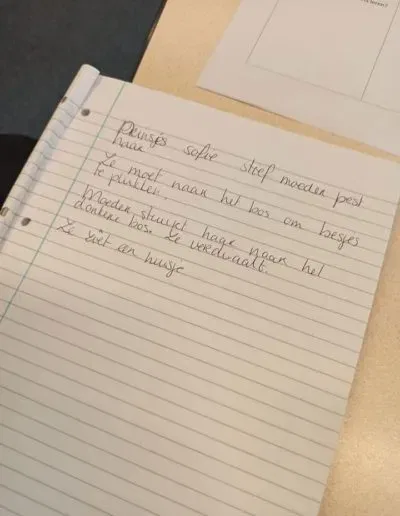 Prinsjs sofie stief moeder pest
haar
Ze moet naar het bos om besjes
te plukken.
Moeder stuurt haar naar het
donkere bos. Ze verdwaalt.
Ze ziet een huisje